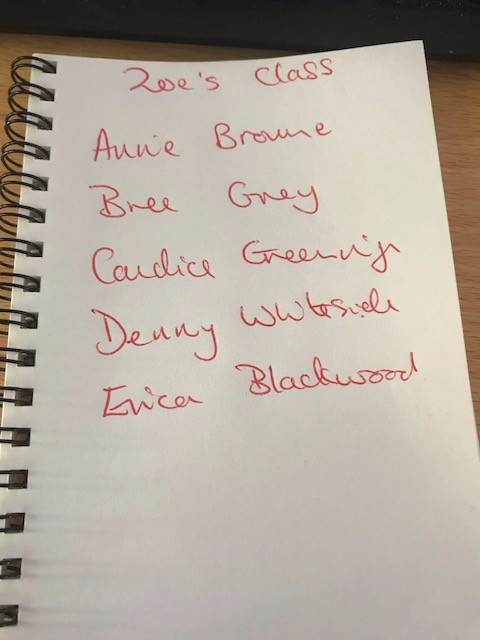 Zoe's Class
Annie Browne
Bree Grey
Candice
Denny Whiteside
Erica Blackwood